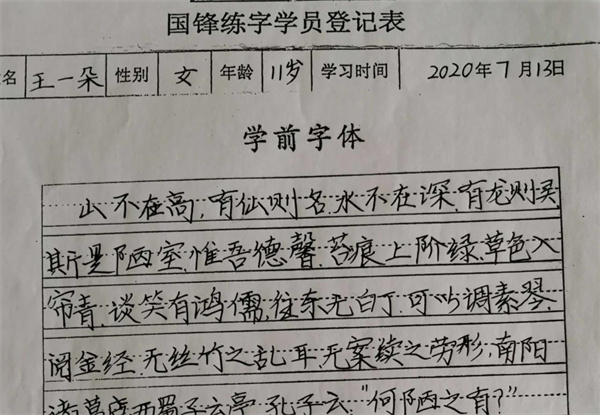 国锋练字学员登记表
名 王一朵 性别 女 年龄 11岁 学习时间 2020年7月13日
学前字体
山不在高,有仙则名.水不在深.有龙则灵
斯是陋室.惟吾德馨.苔痕上阶绿.草色入
帘青.谈笑有鸿儒,往东无白丁.可以调素琴.
阅金经.无丝竹之乱耳.无案续之劳形.南阳
诸葛庐西蜀子云亭.孔子云."何陋之有?"